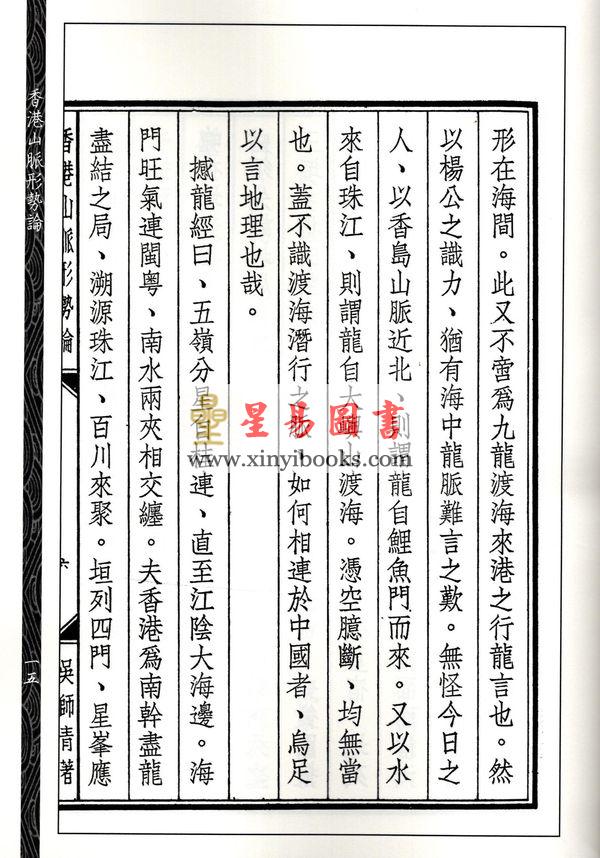 形在海間。此又不啻爲九龍渡海來港之行龍言也。然
以楊公之識力、猶有海中龍脈難言之歎。無怪今日之
人、以香島山脈近北、則謂龍自鯉魚門而來。又以水
來自珠江、則謂龍自大嶼山渡海。憑空臆斷、均無當
也。蓋不識渡海潛行之、如何相連於中國者、烏足
以言地理也哉。
撼龍經曰、五嶺分星自桂連、直至江陰大海邊。海
門旺氣連閩粤、南水兩夾相交纏。夫香港爲南幹盡龍
盡結之局、溯源珠江、百川來聚。垣列四門、星峯應
香港山脈形勢論
六
吳師青著
香港山脈形勢論
一五
星易圖書
www.xinyibooks.com